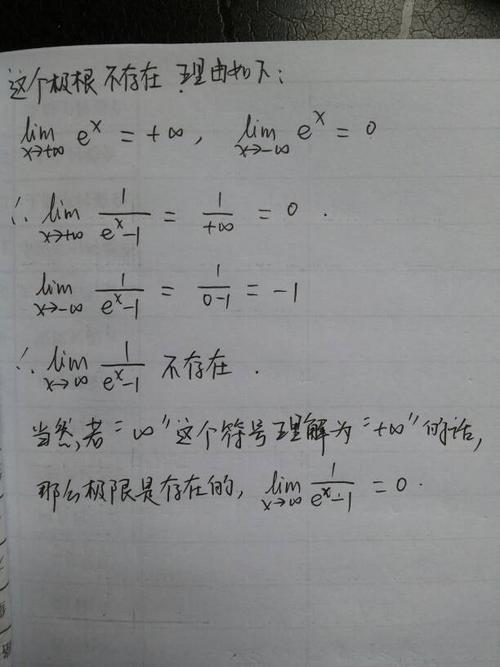 这个极根不存在 理由如下:
lim x→+∞ e^x = +∞, lim x→-∞ e^x = 0
∴ lim x→+∞ 1/(e^x-1) = 1/+∞ = 0.
lim x→-∞ 1/(e^x-1) = 1/(0-1) = -1
∴ lim x→∞ 1/(e^x-1) 不存在.
当然,若"∞"这个符号理解为"+∞"的话,
那么极限是存在的, lim x→∞ 1/(e^x-1) = 0.